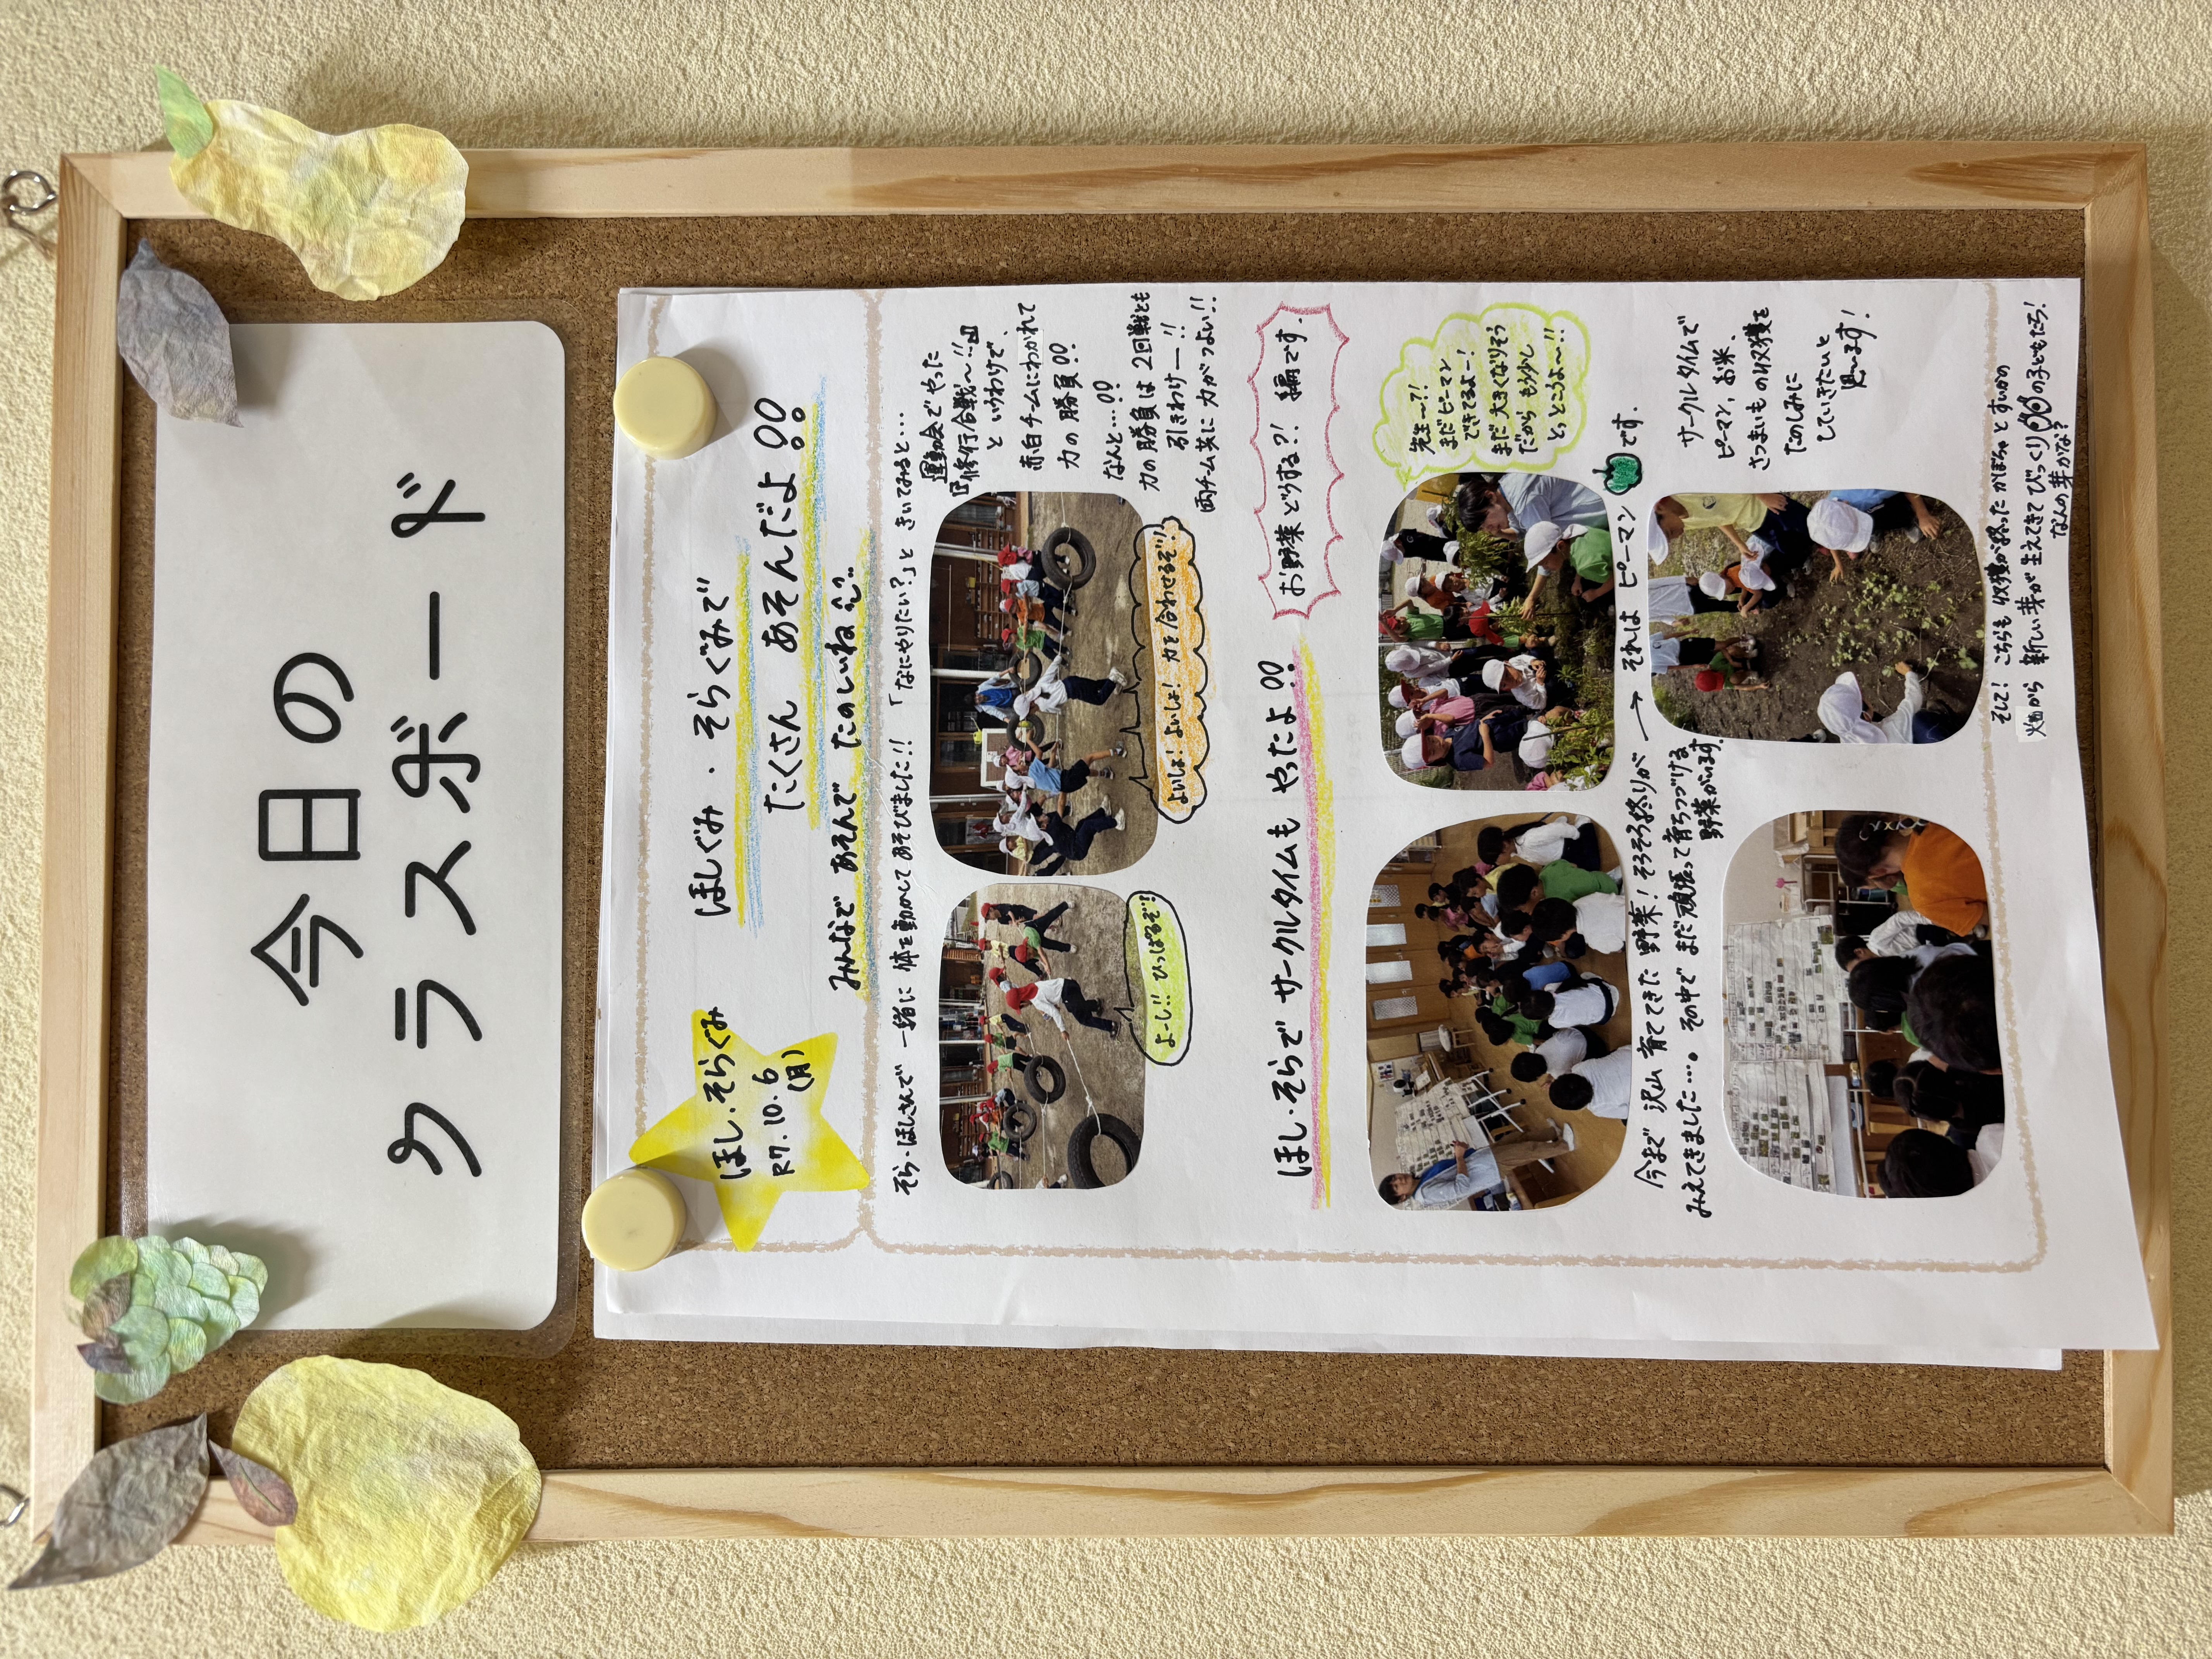 今日の
クラスボード
ほし・そらぐみ
R7.10.6
(月)
ほしぐみ・そらぐみで
たくさん あそんだよ!!
みんなで あそんで たのしいね
そら・ほしさんで 一緒に 体を動かして あそびました!! 「なにやりたい?」と きいてみると…
運動会で やった
『修行合戦〜!!』
と いうわけで、
赤白チームにわかれて
力の勝負!!
なんと…!!
力の勝負は 2回戦とも
引きわけー!!
両チーム共に 力がつよい!!
よーし!! ひっぱるぞ!
よいしょ! よいしょ! 力を合わせるぞ!
ほし・そらで サークルタイムも やったよ!!
お野菜どうする?! 編です.
先生〜?!
まだピーマン
できてるよー!
まだ 大きくなりそう
だから もう少し
とっとこうよ〜!!
今まで 沢山 育ててきた 野菜! そろそろ終りが
みえてきました…。 その中で まだ 頑張って育ちつづける
野菜がいます.
→ それは ピーマン です.
サークルタイムで
ピーマン、お米、
さつまいもの収穫を
たのしみに
していきたいと
思います!
そして! こちらも 収穫が終った かぼちゃと すいかの
畑から 新しい芽が 生えてきて びっくり の子どもたち!
なんの芽かな?